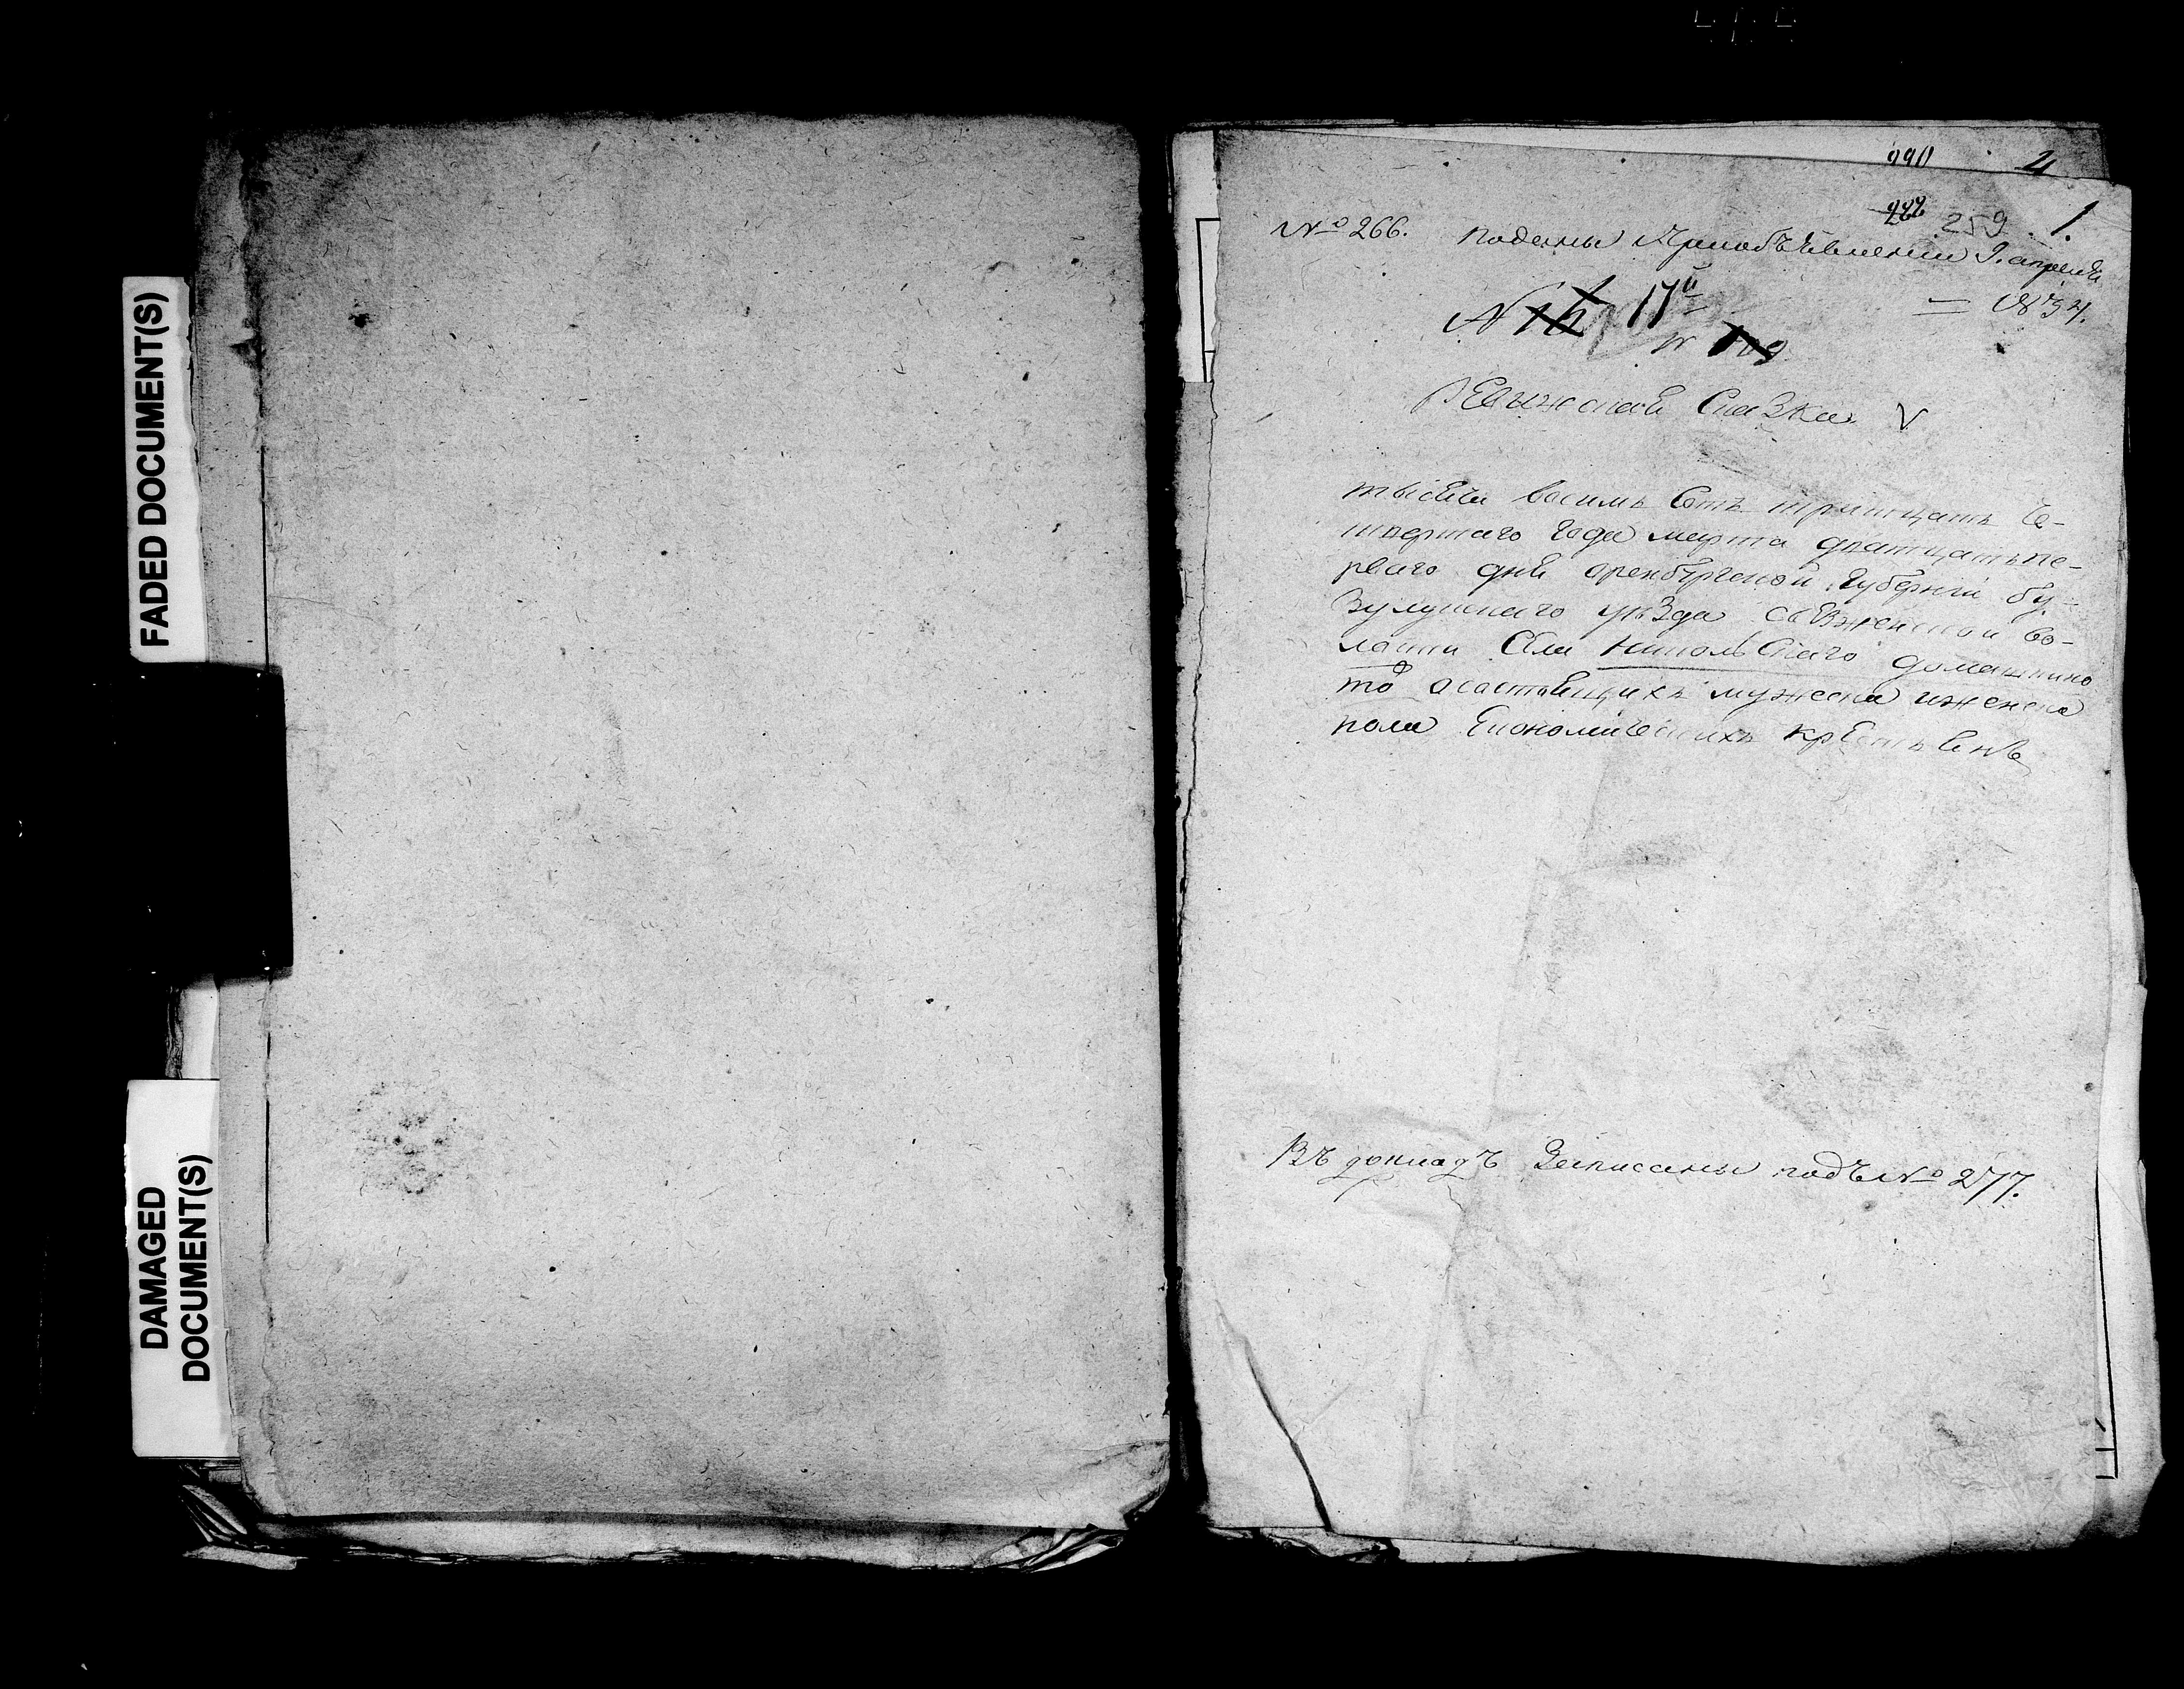 FADED DOCUMENT(S)
DAMAGED
DOCUMENT(S)
990 2
259 1.
№ 266. поданы При объявлении 9. апреля
1834.
N 17й
Ревижская Сказка V
тысеча восимь сотъ тритцать че-
твертаго года марта дватцатьпе-
рваго дня оренбургской губернии бу-
зулуцкаго уезда съезженской во-
лости села никольскаго домашкино
то осостоящихъ мужеска иженска
пола економическихъ крестьянъ
Въ докладъ Записаны подъ № 277.